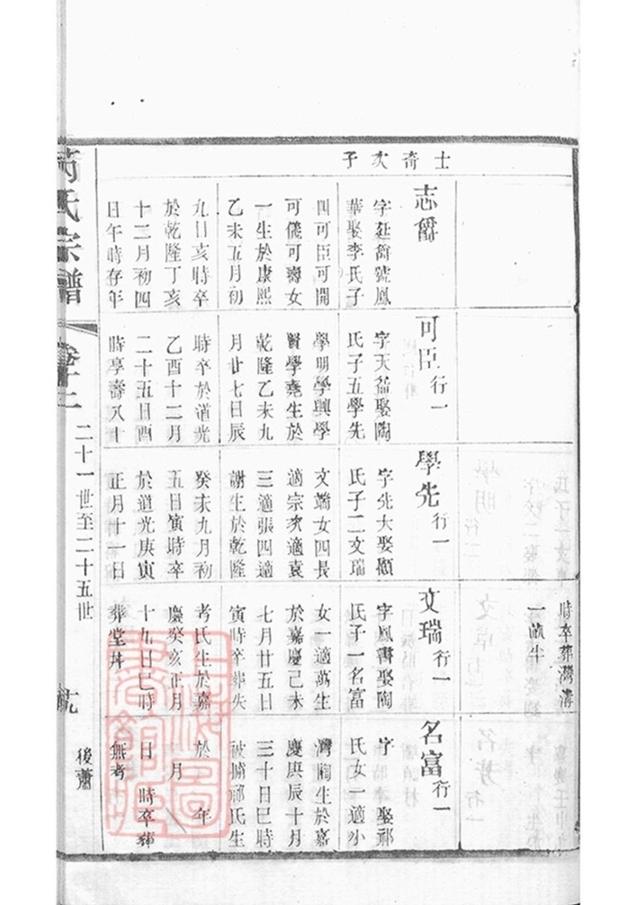 士奇次子
時卒葬灣溝
一畝半
志爵
字廷爵號鳳
華娶李氏子
四可臣可開
可儀可壽女
一生於康熙
乙未五月初
九日亥時卒
於乾隆丁亥
十二月初四
日午時存年
可臣行一
字天益娶陶
氏子五學先
學明學興學
賢學堯生於
乾隆乙未九
月廿七日辰
時卒於道光
乙酉十二月
二十五日酉
時享壽八十
學先行一
字先大娶顧
氏子二文瑞
文端女四長
適宗次適袁
三適張四適
謝生於乾隆
癸未九月初
五日寅時卒
於道光庚寅
正月十一日
文瑞行一
字鳳書娶陶
氏子一名富
女一適萬生
於嘉慶己未
七月廿五日
寅時卒葬失
考氏生於嘉
慶癸亥正月
十九日巳時
葬堂圩
名富行一
字 娶祁
氏女一適小
灣生於嘉
慶庚辰十月
三十日巳時
被擄祁氏生
於 年
月
日 時卒葬
無考
芮氏宗譜
卷十二
二十一世至二十五世
後蕭